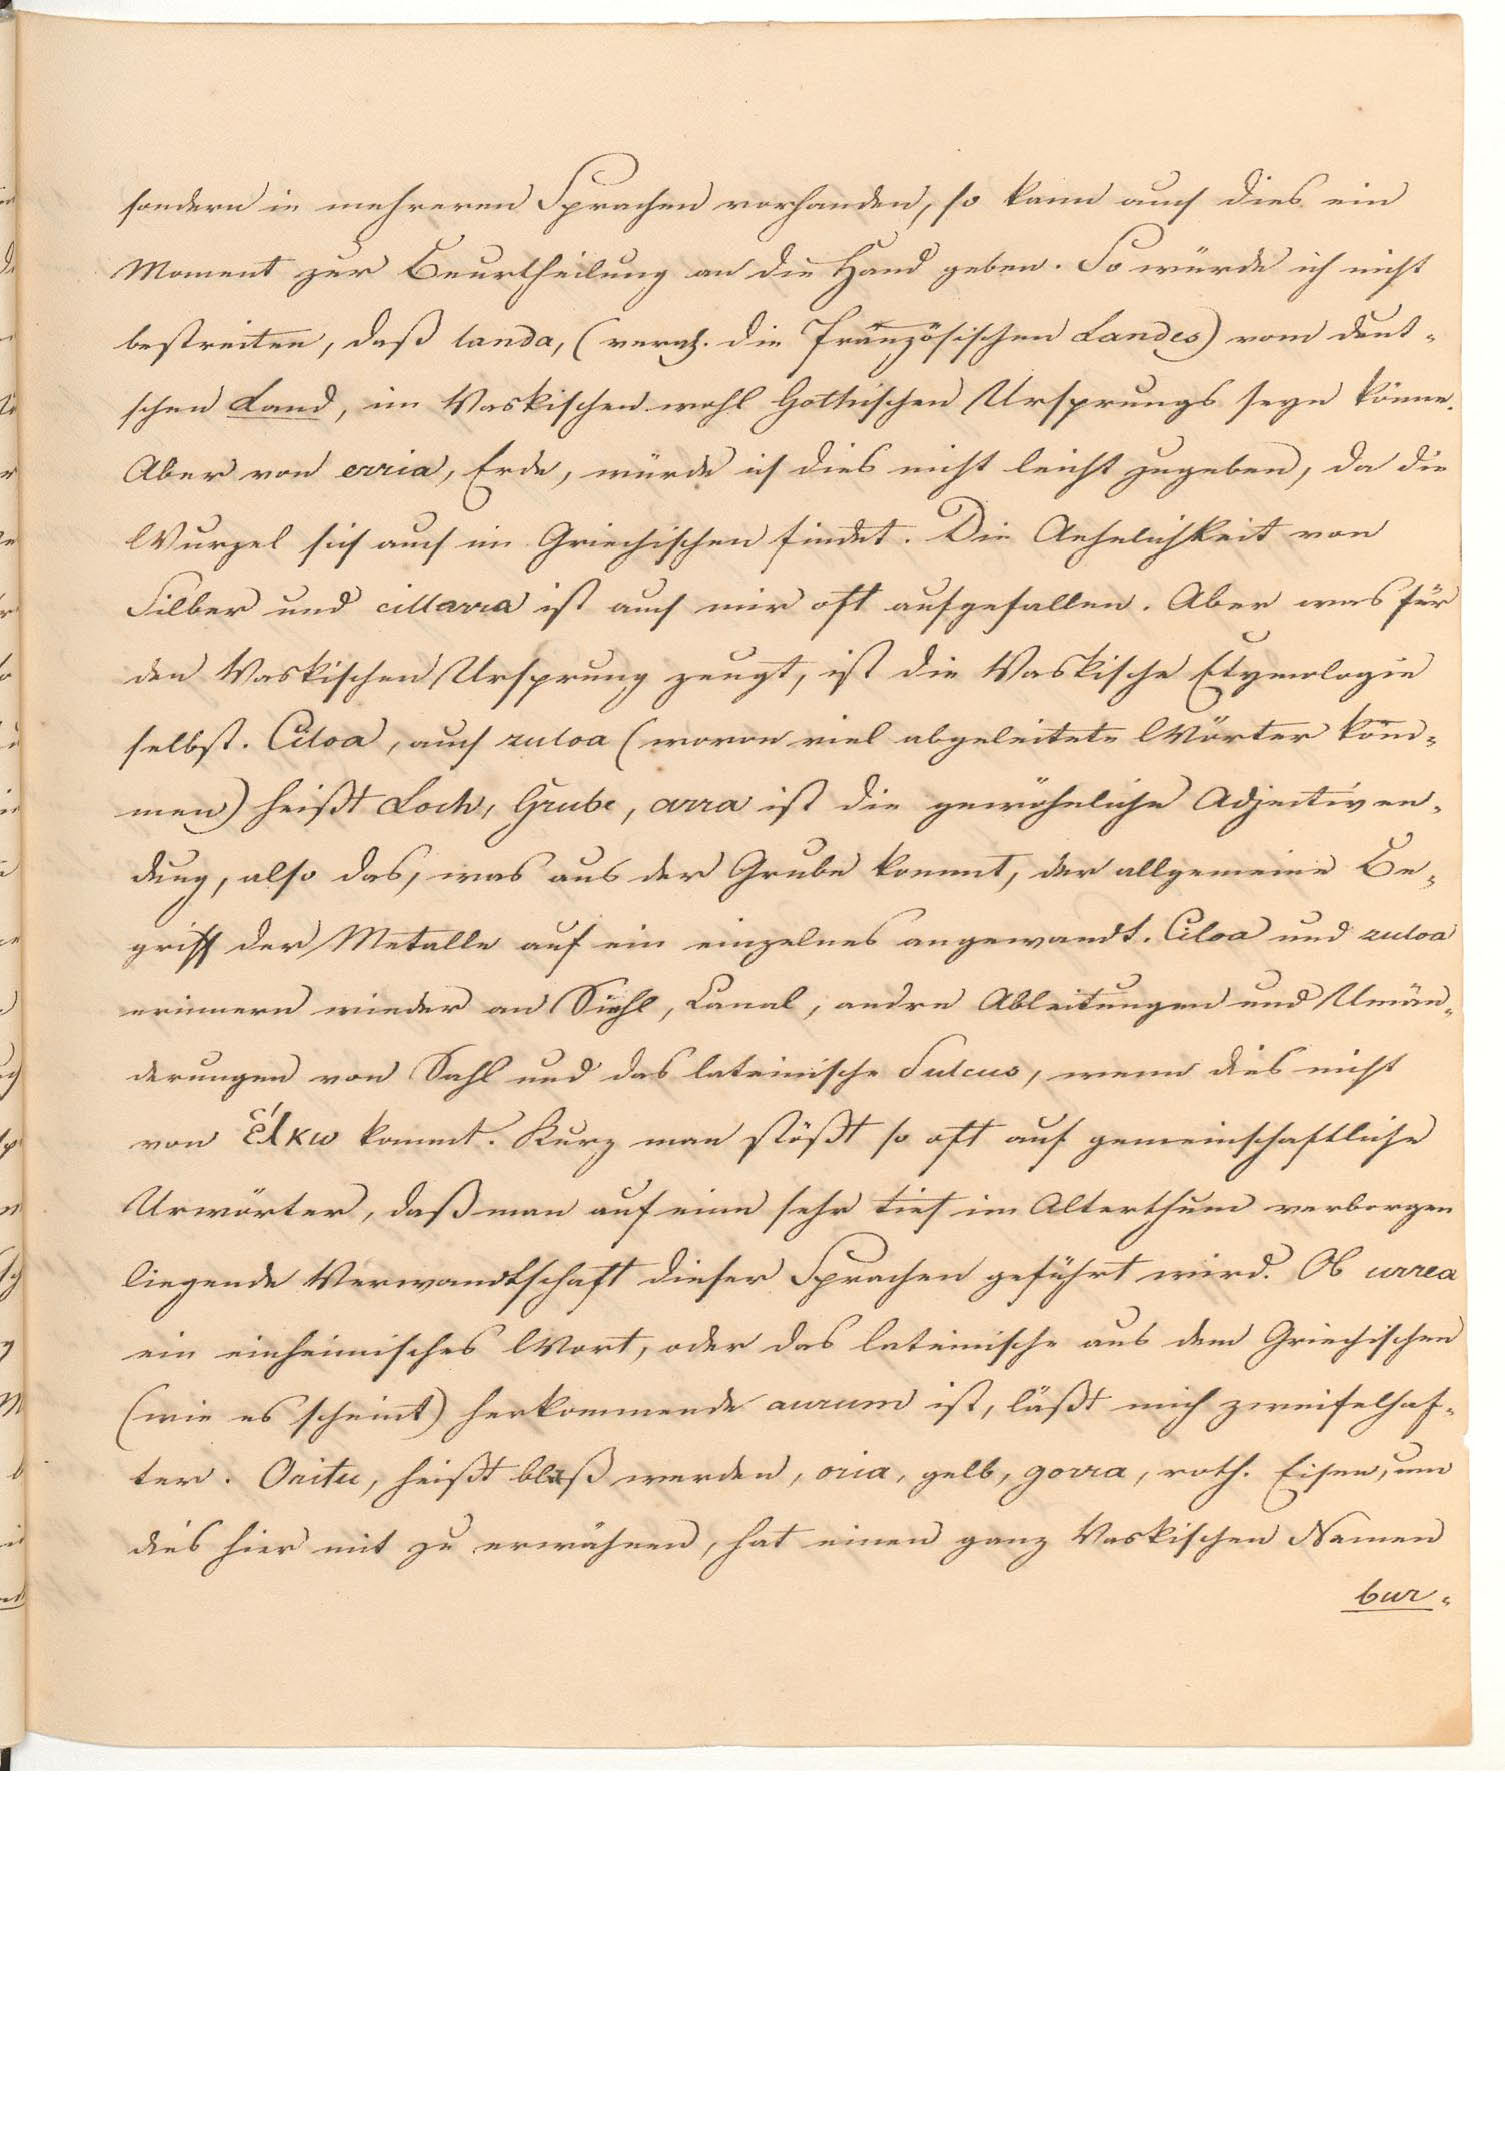 sondern in mehreren Sprachen vorhanden, so kann auch dies ein
Moment zur Beurtheilung an die Hand geben. So würde ich nicht
bestreiten, daß landa, (vergl. die Französischen Landes) vom deut-
schen Land, im Vaskischen wohl Gothischen Ursprungs seyn könne.
Aber von erria, Erde, würde ich dies nicht leicht zugeben, da die
Wurzel sich auch im Griechischen findet. Die Aehnlichkeit von
Silber und cillarra ist auch mir oft aufgefallen. Aber was für
den Vaskischen Ursprung zeugt, ist die Vaskische Etymologie
selbst. Ciloa, auch zuloa (wovon viel abgeleitete Wörter kom-
men) heißt Loch, Grube, arra ist die gewöhnliche Adjectiven-
dung, also das, was aus der Grube kommt, der allgemeine Be-
griff der Metalle auf ein einzelnes angewandt. Ciloa und zuloa
erinnern wieder an Siehl, Canal, andre Ableitungen und Umän-
derungen von Sahl und das lateinische Sulcus, wenn dies nicht
von ἕλκω kommt. Kurz man stößt so oft auf gemeinschaftliche
Urwörter, daß man auf eine sehr tief im Alterthum verborgen
liegende Verwandtschaft dieser Sprachen geführt wird. Ob urrea
ein einheimisches Wort, oder das lateinische aus dem Griechischen
(wie es scheint) herkommende aurum ist, läßt mich zweifelhaf-
ter. Oritu, heißt blaß werden, oria, gelb, gorra, roth. Eisen, um
dies hier mit zu erwähnen, hat einen ganz Vaskischen Namen
bur-